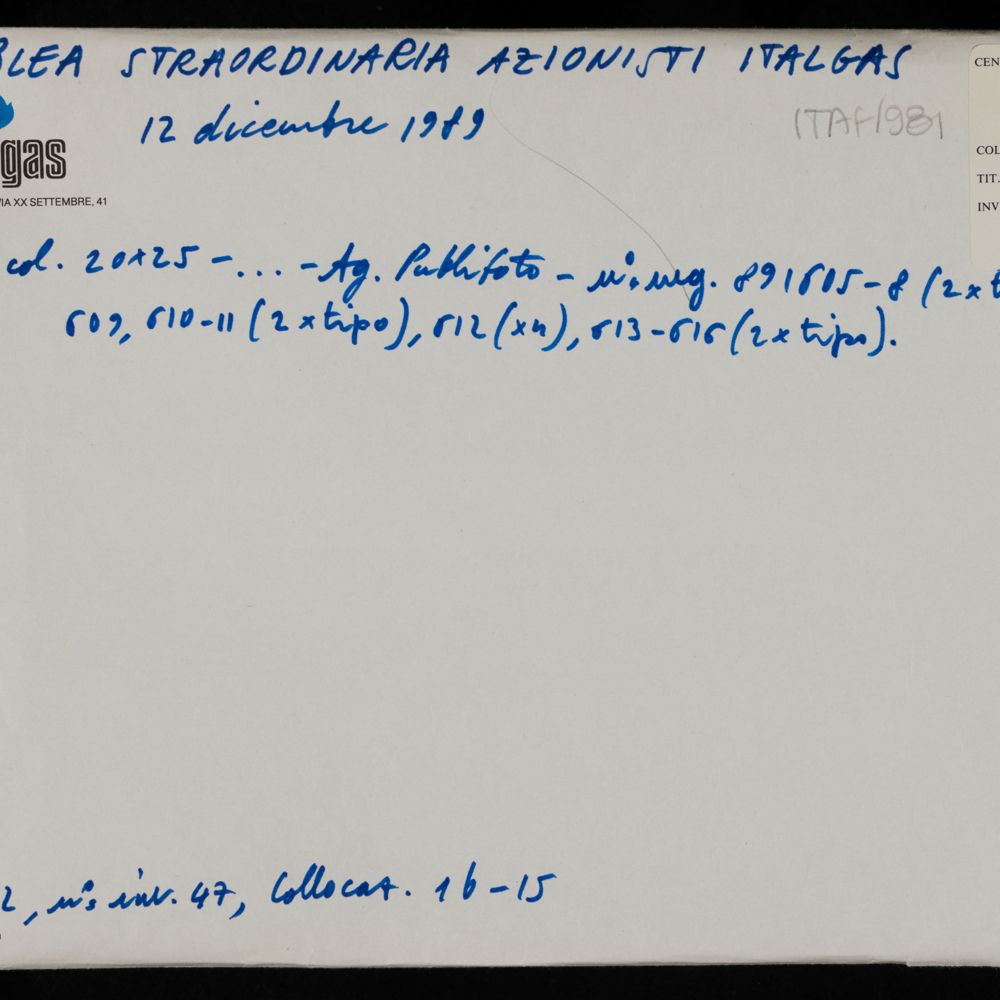 BLEA STRAORDINARIA AZIONISTI ITALGAS
12 dicembre 1989
ITAF/981
CEN
COL
TIT.
INV
gas
VIA XX SETTEMBRE, 41
col. 20x25 - ... - Ag. Publifoto - n°. neg. 891605-8 (2 x t
609, 610-11 (2 x tipo), 612 (x4), 613-616 (2 x tipo).
2, n°. inv. 47, Collocaz. 1b-15